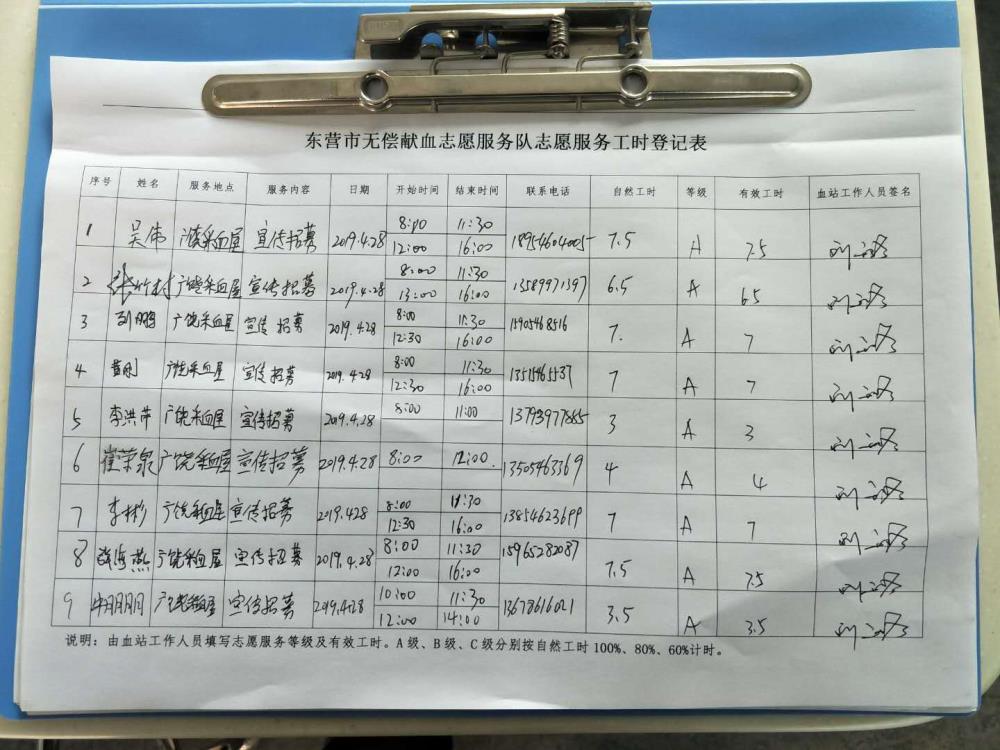 东营市无偿献血志愿服务队志愿服务工时登记表
序号 姓名 服务地点 服务内容 日期 开始时间 结束时间 联系电话 自然工时 等级 有效工时 血站工作人员签名
1 吴伟 广饶采血屋 宣传招募 2019.4.28 8:00 11:30 18954604005 7.5 A 7.5
12:00 16:00
2 张竹村 广饶采血屋 宣传招募 2019.4.28 8:00 11:30 13589971397 6.5 A 6.5
13:00 16:00
3 刘鹏 广饶采血屋 宣传招募 2019.4.28 8:00 11:30 15905468516 7. A 7
12:30 16:00
4 广饶采血屋 宣传招募 2019.4.28 8:00 11:30 13515465537 7 A 7
12:30 16:00
5 李洪芹 广饶采血屋 宣传招募 2019.4.28 8:00 11:00 13793977885 3 A 3
6 崔荣泉 广饶采血屋 宣传招募 2019.4.28 8:00 12:00. 13505463369 4 A 4
7 李彬 广饶采血屋 宣传招募 2019.4.28 8:00 11:30 13854623699 7 A 7
12:30 16:00
8 海燕 广饶采血屋 宣传招募 2019.4.28 8:00 11:30 15965282087 7.5 A 7.5
12:00 16:00
9 牛朋朋 广饶采血屋 宣传招募 2019.4.28 10:00 11:30 13678616021 3.5 A 3.5
12:00 14:00
说明：由血站工作人员填写志愿服务等级及有效工时。A级、B级、C级分别按自然工时100%、80%、60%计时。